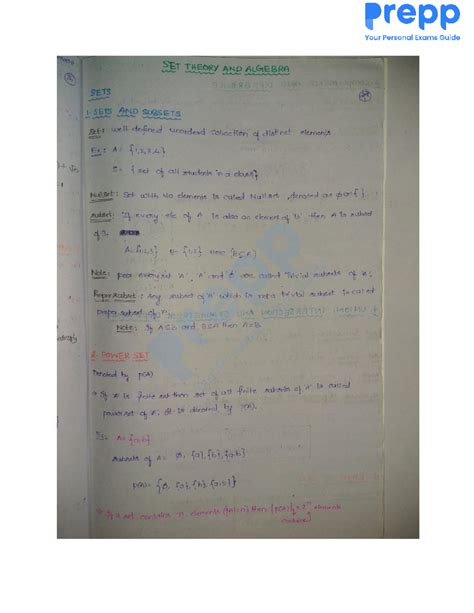 prepp
Your Personal Exams Guide
SET THEORY AND ALGEBRA
SETS
1. SETS AND SUBSETS
Set: well defined unordered collection of distinct elements
Ex: A = {1,2,3,4}
S = { set of all students in a class}
Nullset: Set with no elements is called Nullset, denoted as ϕ or { }
Subset: If every ele of A is also an element of B then A is subset
of B.
A = {1,2,3} B = {1,2} B⊆A
Note: for every set 'A', 'A' and ϕ are called trivial subsets of 'A';
Proper subset: Any subset of 'A' which is not a trivial subset is called
proper subset of 'A'
Note: If A⊆B and B⊆A then A=B.
2. POWER SET
Denoted by P(A)
If A is finite set then set of all finite subsets of A is called
power set of A; It is denoted by P(A).
Ex: A = {a,b}
Subsets of A = ϕ, {a}, {b}, {a,b}
P(A) = {ϕ, {a}, {b}, {a,b}}
If a set contains n elements (|A|=n) then |P(A)| = 2ⁿ elements
prepp